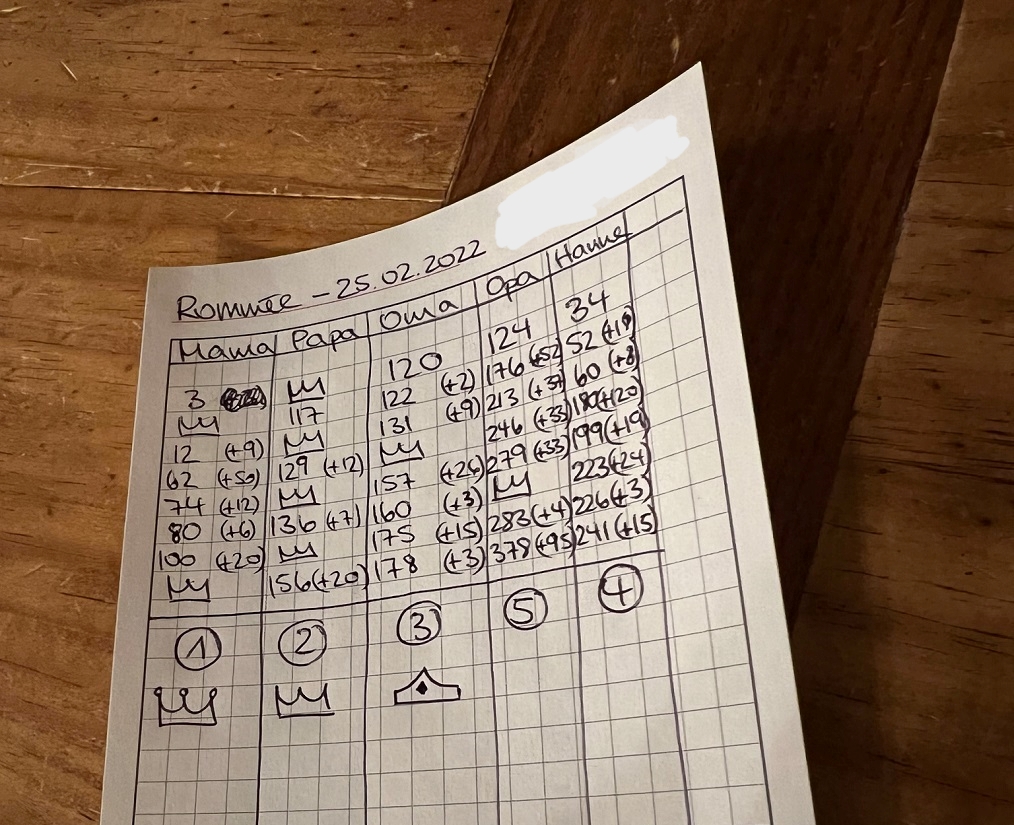 Rommée - 25.02.2022
Mama Papa Oma Opa Hanne
3 120 124 34
117 122 (+2) 176 (+52) 52 (+18)
12 (+9) 131 (+9) 213 (+37) 60 (+8)
62 (+50) 129 (+12) 246 (+33) 180(+120)
74 (+12) 157 (+26) 279 (+33) 199(+19)
80 (+6) 136 (+7) 160 (+3) 223(+24)
100 (+20) 175 (+15) 283(+4) 226(+3)
156(+20) 178 (+3) 378(+95) 241(+15)
1 2 3 5 4